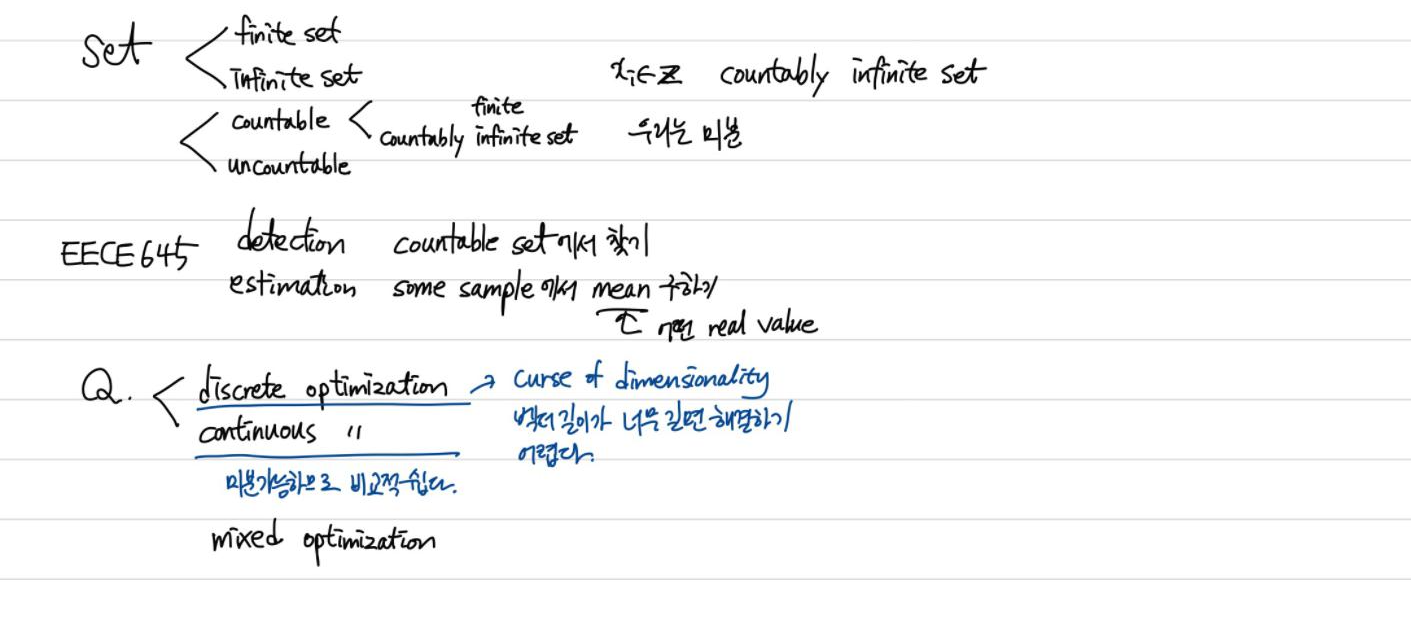 set < finite set
infinite set
x_i ∈ Z countably infinite set
< countable < finite
countably infinite set
우리는 미분
uncountable
EECE645 detection countable set에서 찾기
estimation some sample에서 mean 구하기
↑ 어떤 real value
Q. < discrete optimization → curse of dimensionality
벡터 길이가 너무 길면 해결하기
어렵다.
continuous 〃
미분가능하므로 비교적 쉽다.
mixed optimization